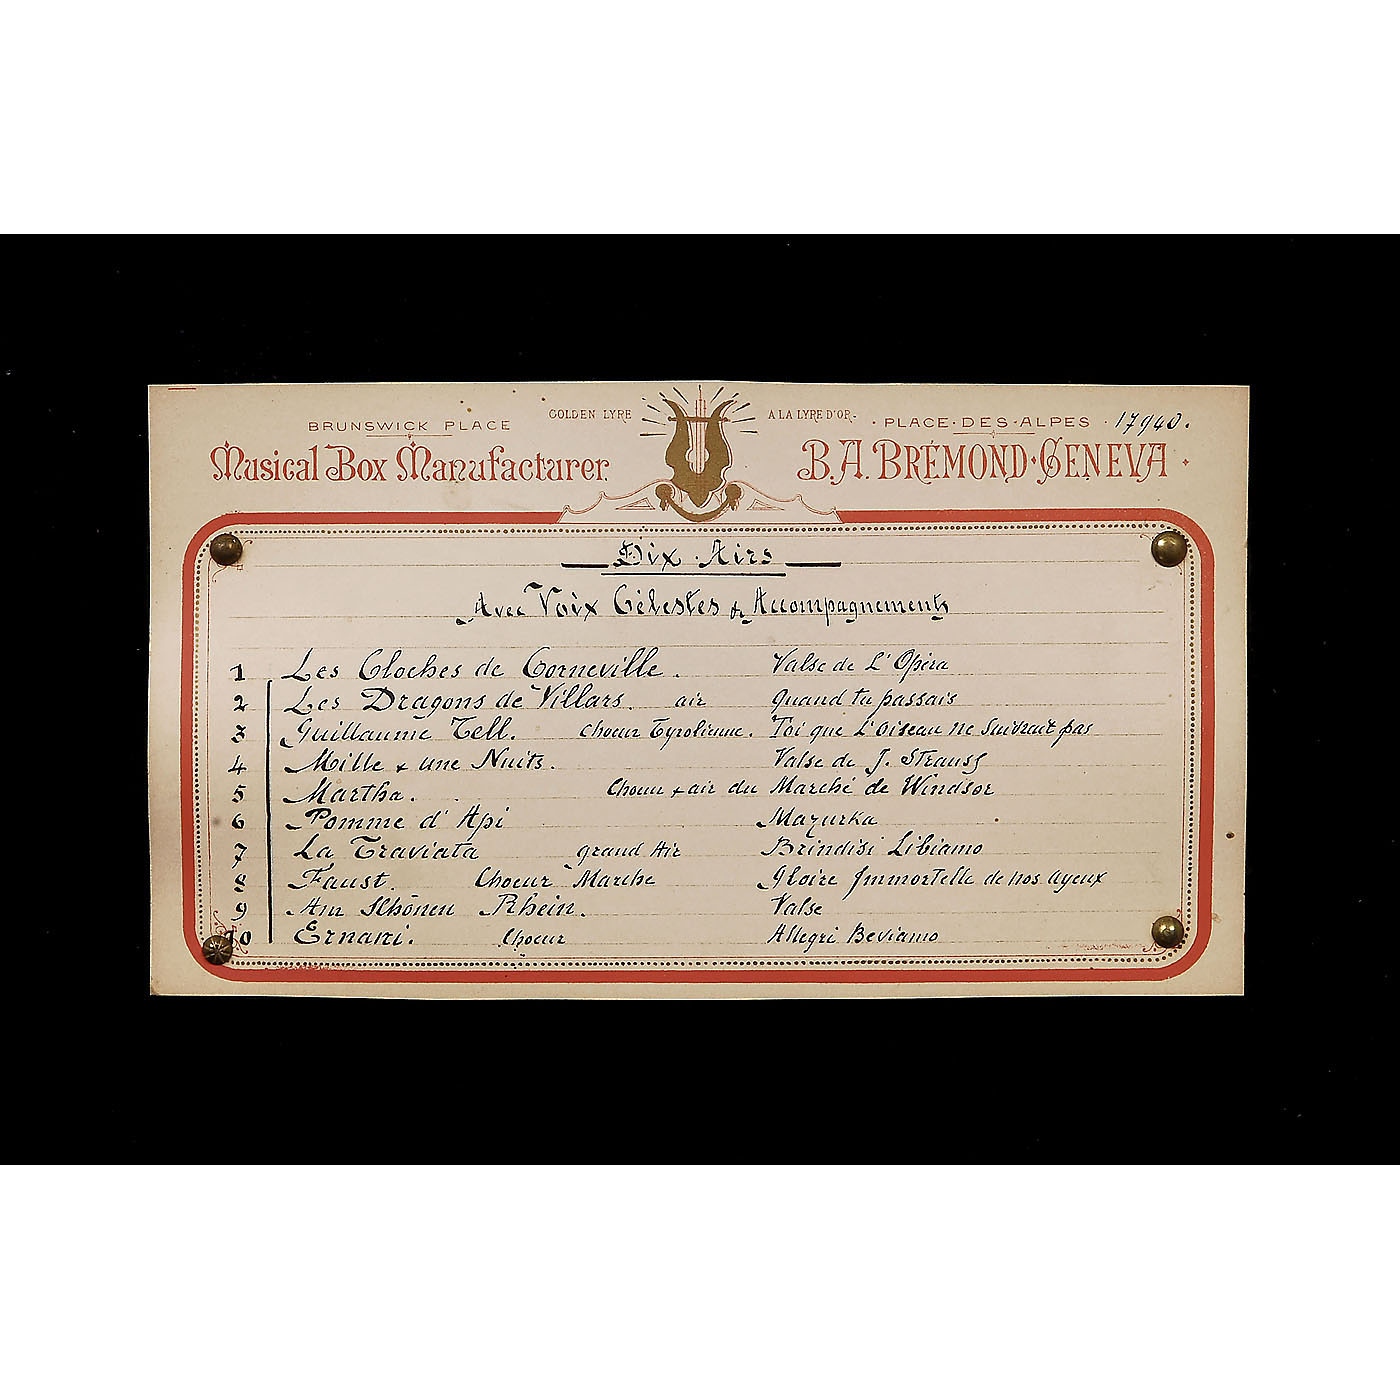 GOLDEN LYRE A LA LYRE D'OR.
BRUNSWICK PLACE · PLACE·DES·ALPES · 17940.
Musical Box Manufacturer. B.A. BRÉMOND·GENEVA
Dix Airs
Avec Voix Célestes & Accompagnements
1 Les Cloches de Corneville. Valse de L'Opéra
2 Les Dragons de Villars. air Quand tu passais
3 Guillaume Tell. Choeur Tyrolienne. Toi que L'oiseau ne Suivrait pas
4 Mille & une Nuits. Valse de J. Strauss
5 Martha. Choeur & air du Marché de Windsor
6 Pomme d'Api Mazurka
7 La Traviata grand Air Brindisi Libiamo
8 Faust. Choeur Marche Gloire Immortelle de nos ayeux
9 Am Schönen Rhein. Valse
10 Ernani. Choeur Allegri Beviamo